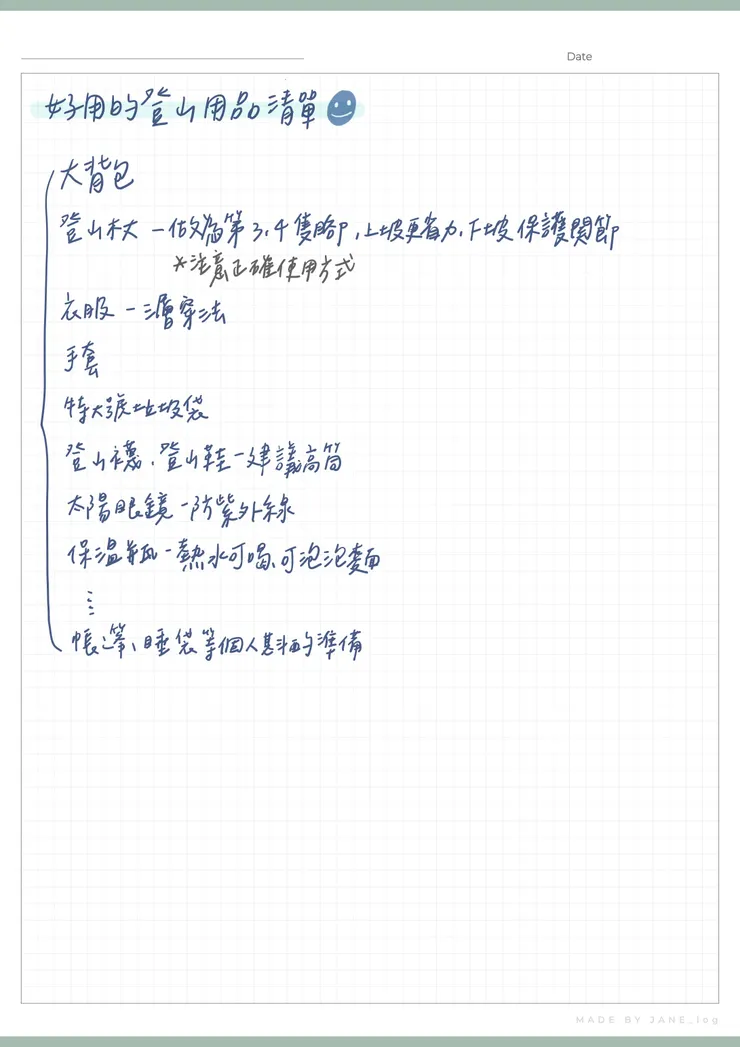 Date
好用的登山用品清單
大背包
登山杖 - 做為第3、4隻腳，上坡更省力，下坡保護關節
*注意正確使用方式
衣服 - 三層穿法
手套
特大號垃圾袋
登山襪、登山鞋 - 建議高筒
太陽眼鏡 - 防紫外線
保溫瓶 - 熱水可喝、可泡泡麵
帳篷、睡袋等個人基本的準備
MADE BY JANE_log